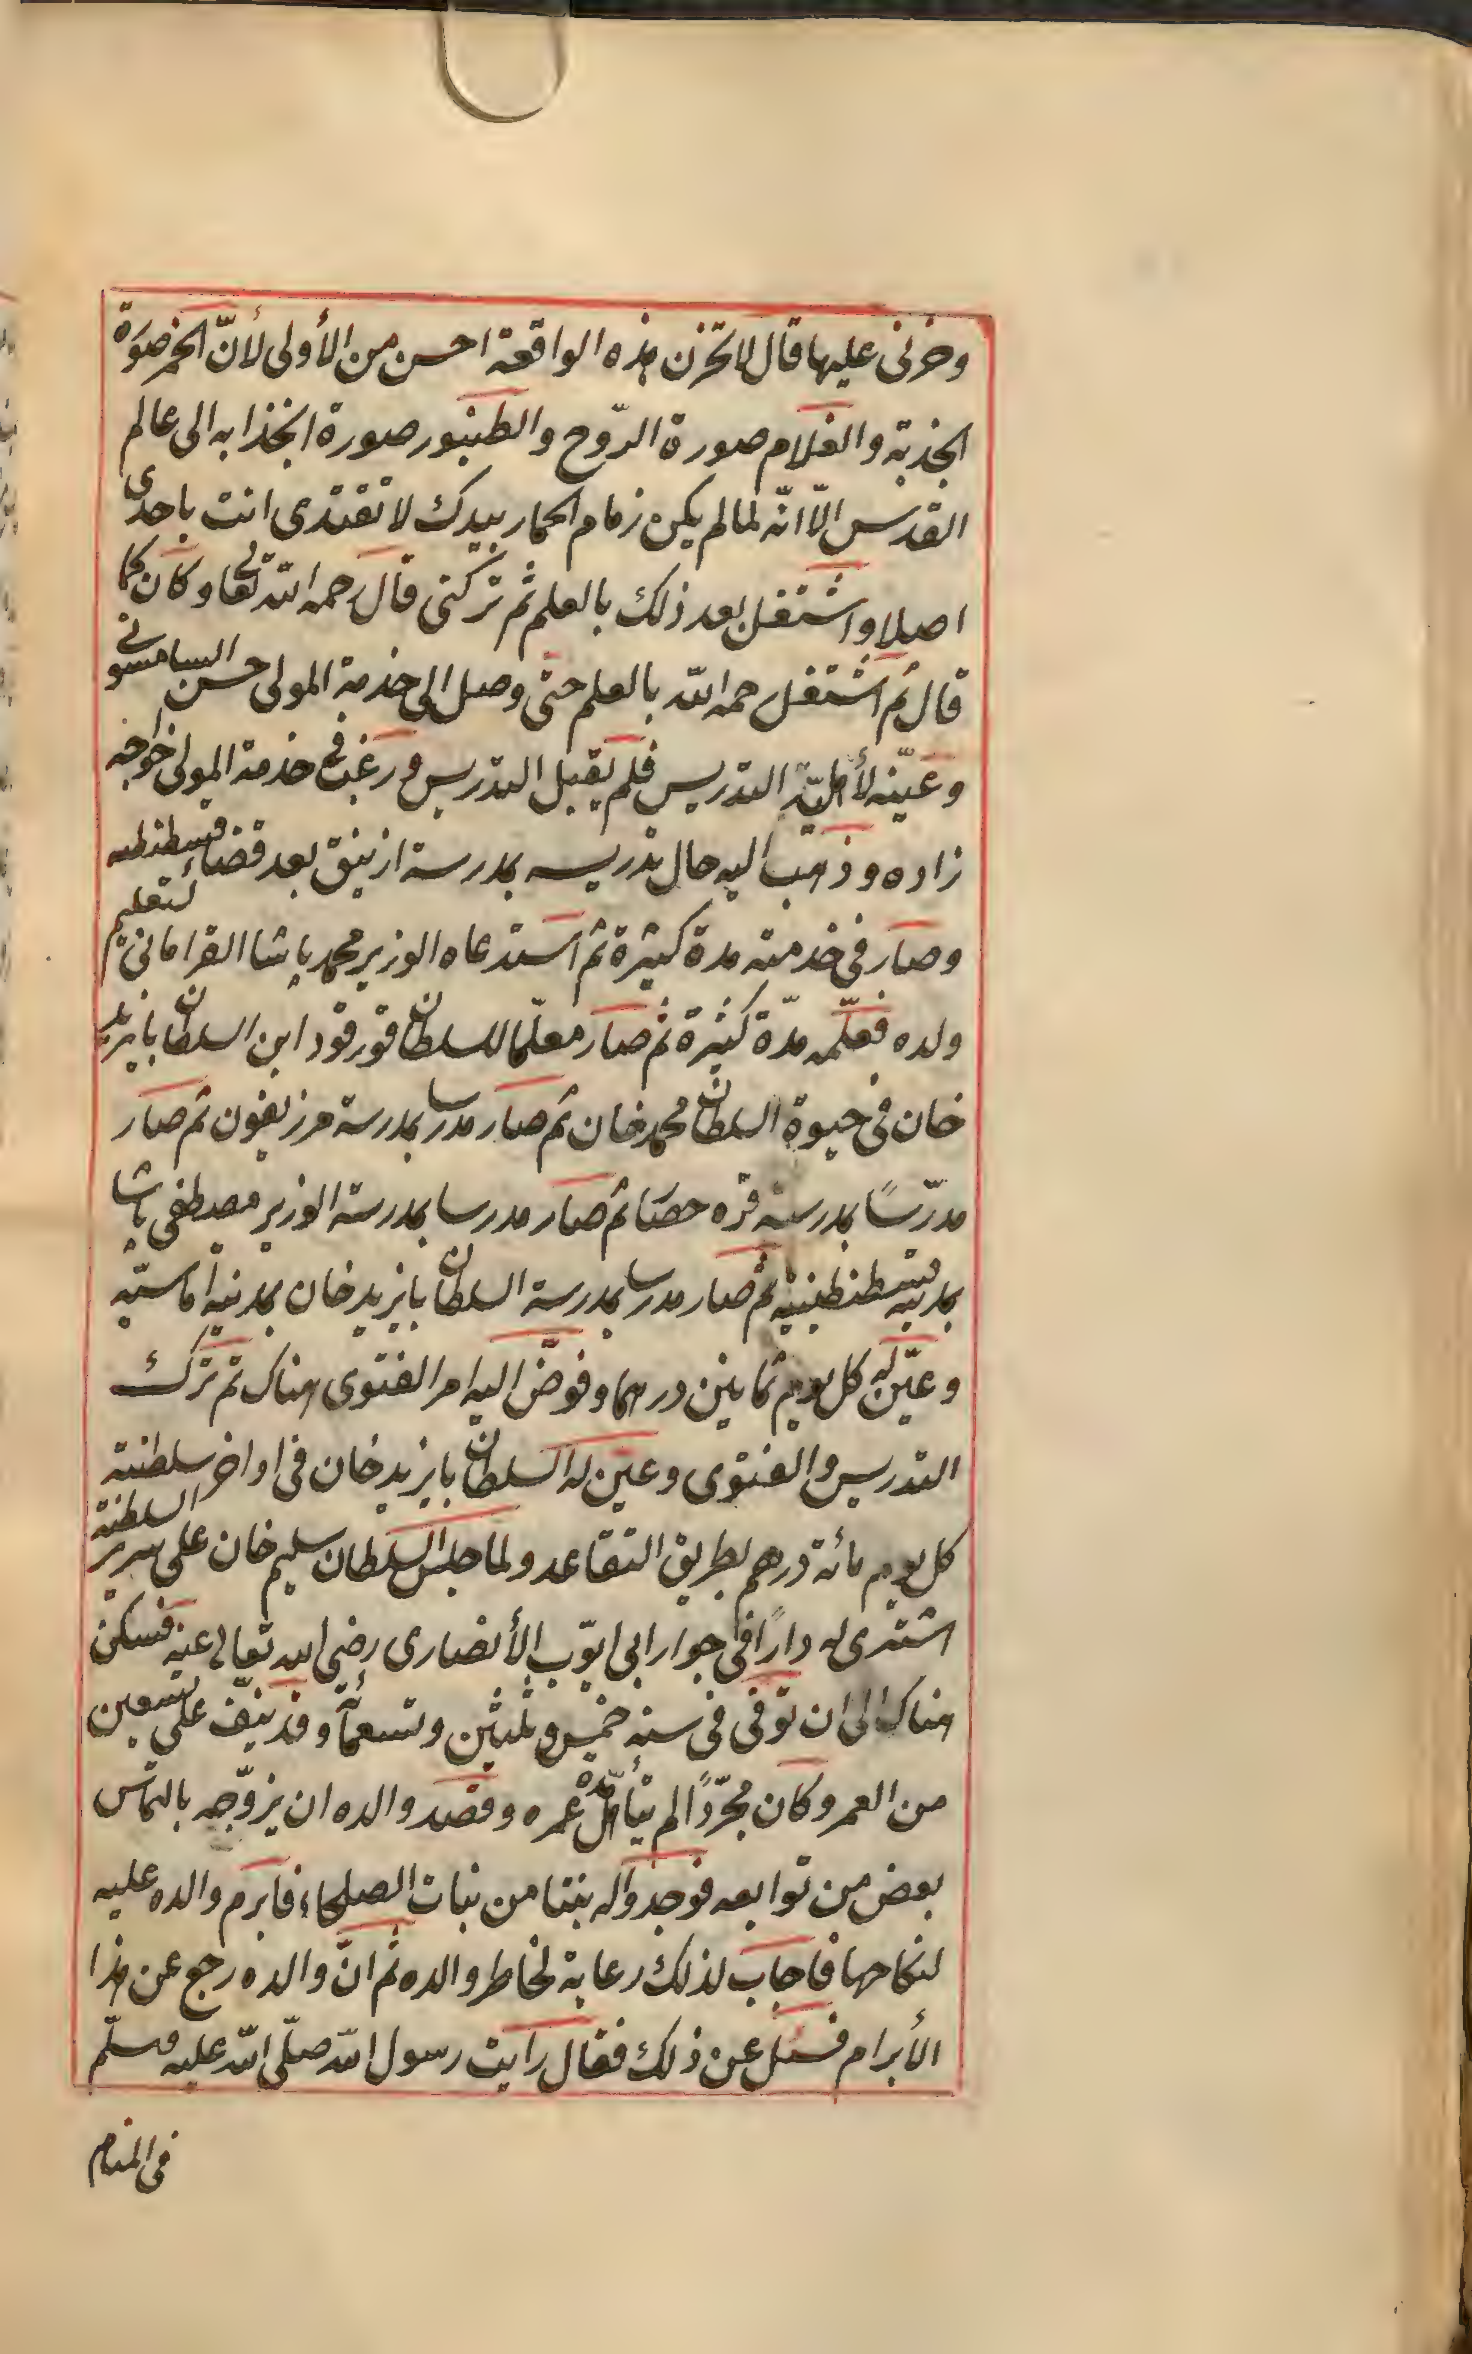 وحزنى عليها قال لا تحزن هذه الواقعة احسن من الأولى لأنّ الخمر صورة
الجذبة والغلام صورة الرّوح والطنبور صورة انجذابه الى عالم
القدس الّا انّه لما لم يكن زمام الحمار بيدك لا تقتدى انت باحدى
اصلا واشتغل بعد ذلك بالعلم ثم تركنى قال رحمه الله تعالى وكان كما
قال ثم اشتغل رحمه الله بالعلم حتى وصل الى خدمة المولى حسن السامسونى
وعيّنه لأهليّة التدريس فلم يقبل التدريس ورغب فى خدمة المولى خواجه
زاده وذهب اليه حال تدريسه بمدرسة ازنيق بعد قضاء قسطنطنيه
وصار فى خدمته مدة كثيرة ثم استدعاه الوزير محمد پاشا القرامانى لتعليم
ولده فعلّمه مدّة كثيرة ثم صار معلّما للسلطان قورقود ابن السلطان بايزيد
خان فى حيوة السلطان محمد خان ثم صار مدرسا بمدرسة مرزيفون ثم صار
مدرّسًا بمدرسة قره حصار ثم صار مدرسا بمدرسة الوزير مصطفى پاشا
بمدينة قسطنطينيّة ثم صار مدرسا بمدرسة السلطان بايزيد خان بمدينة أماسيّه
وعيّن له كل يوم ثمانين درهما وفوّض اليه امر الفتوى هناك ثم ترك
التدريس والفتوى وعيّن له السلطان بايزيد خان فى اواخر سلطنته
كل يوم مائة درهم بطريق التقاعد ولما جلس السلطان سليم خان على سرير السلطنة
اشترى له دارًا فى جوار ابى ايّوب الأنصارى رضى الله تعالى عنه فسكن
هناك الى ان توفى فى سنة خمس وثلثين وتسعمائة وقد نيّف على تسعين
من العمر وكان مجرّدًا لم يتأهّل مدّة عمره وقصد والده ان يزوّجه بالتماس
بعض من توابعه فوجدوا له بنتا من بنات الصلحاء فابرم والده عليه
لنكاحها فاجاب لذلك رعاية لخاطر والده ثم انّ والده رجع عن هذا
الأبرام فسئل عن ذلك فقال رايت رسول الله صلّى الله عليه وسلّم
فى المنام